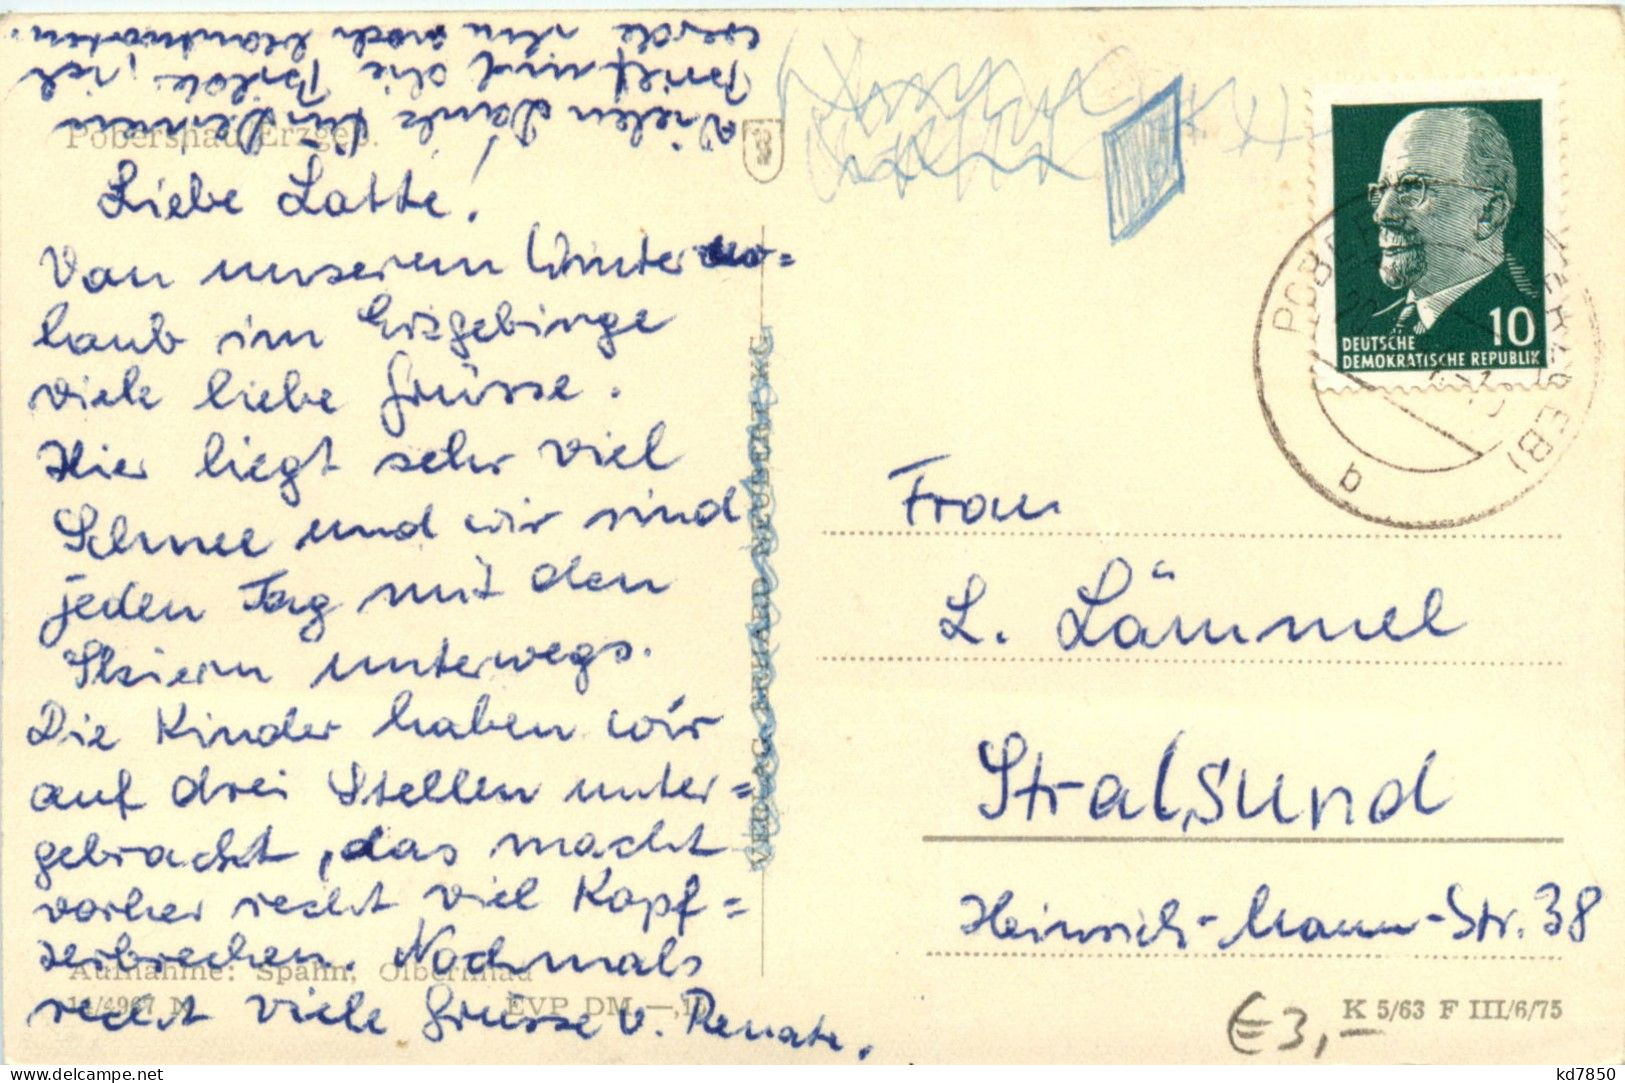 Vielen Dank für Deinen
Brief und die Bilder, ich
werde ihn noch beantworten.
Pobershau Erzgeb.
Liebe Lotte!
Von unserem Winterur=
laub im Erzgebirge
viele liebe Grüsse.
Hier liegt sehr viel
Schnee und wir sind
jeden Tag mit den
Skiern unterwegs.
Die Kinder haben wir
auf drei Stellen unter=
gebracht, das macht
vorher recht viel Kopf=
zerbrechen. Nochmals
recht viele Grüsse v. Renate.
Aufnahme: Spahn, Olbernhau
EVP DM —,
VERLAG
DEUTSCHE
DEMOKRATISCHE REPUBLIK
10
POBERSHAU (ERZGEB)
b
Frau
L. Lämmel
Stralsund
Heinrich-Mann-Str. 38
K 5/63 F III/6/75
€ 3,-
kd7850